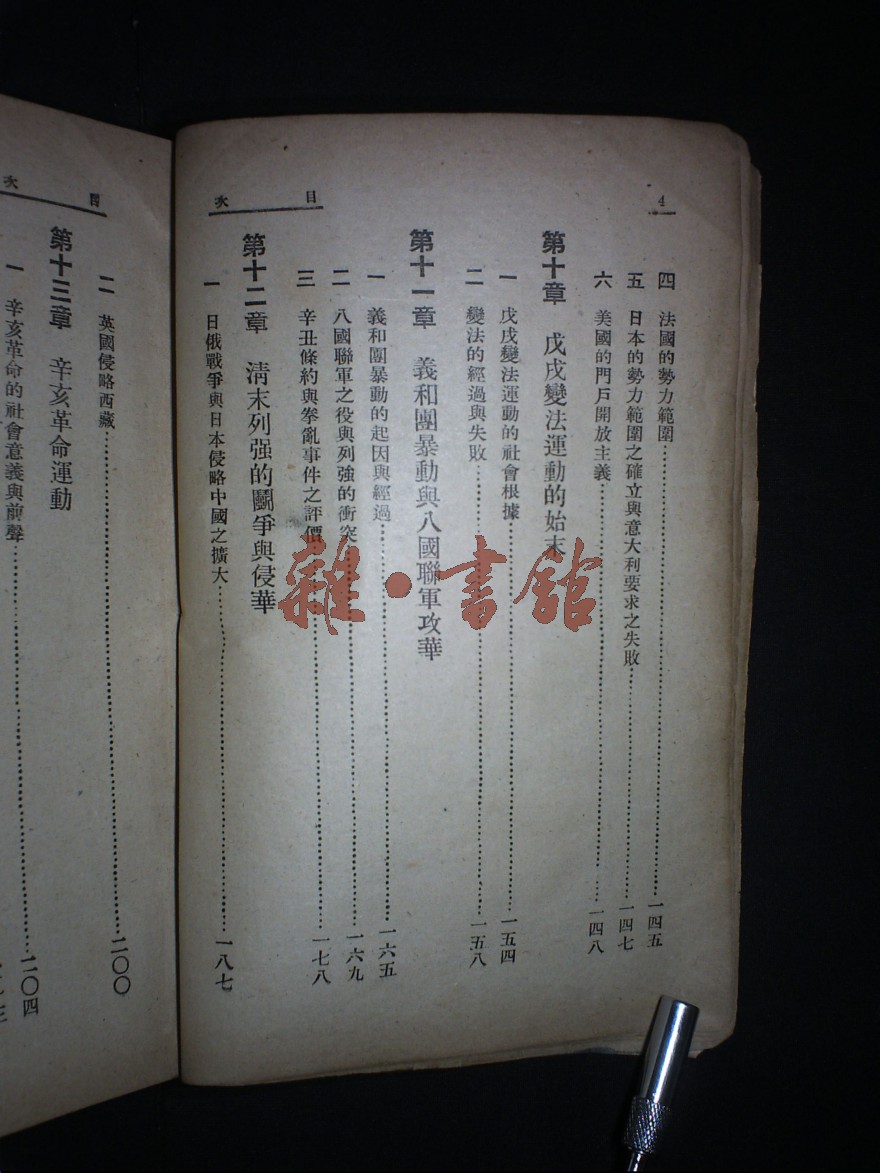 4
目次
四 法國的勢力範圍……一四五
五 日本的勢力範圍之確立與意大利要求之失敗……一四七
六 美國的門戶開放主義……一四八
第十章 戊戌變法運動的始末
一 戊戌變法運動的社會根據……一五四
二 變法的經過與失敗……一五八
第十一章 義和團暴動與八國聯軍攻華
一 義和團暴動的起因與經過……一六五
二 八國聯軍之役與列强的衝突……一六九
三 辛丑條約與拳亂事件之評價……一七八
第十二章 淸末列强的鬭爭與侵華
一 日俄戰爭與日本侵略中國之擴大……一八七
目次
二 英國侵略西藏……二〇〇
第十三章 辛亥革命運動
一 辛亥革命的社會意義與前聲……二〇四
雜·書館